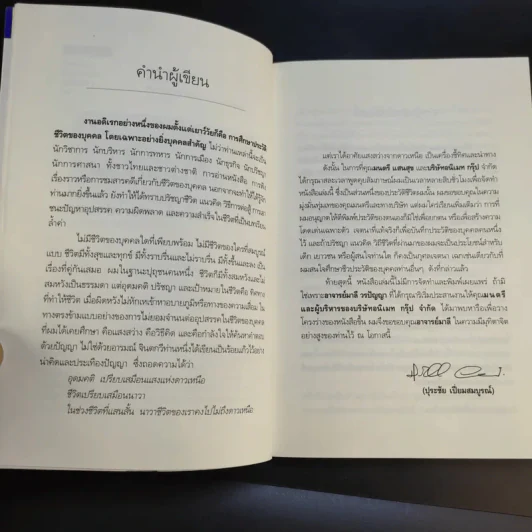 คำนำผู้เขียน
งานอดิเรกอย่างหนึ่งของผมตั้งแต่เยาว์วัยก็คือ การศึกษาประวัติ
ชีวิตของบุคคล โดยเฉพาะอย่างยิ่งบุคคลสำคัญ ไม่ว่าท่านเหล่านี้จะเป็น
นักวิชาการ นักบริหาร นักการทหาร นักการเมือง นักธุรกิจ นักปรัชญา
นักการศาสนา ทั้งชาวไทยและชาวต่างชาติ การอ่านหนังสือ การฟัง
เรื่องราวหรือการชมสารคดีเกี่ยวกับชีวิตของบุคคล นอกจากจะทำให้ได้รู้จัก
ท่านมากยิ่งขึ้นแล้ว ยังทำให้ได้ทราบปรัชญาชีวิต แนวคิด วิธีการต่อสู้
ชนะปัญหาอุปสรรค ความผิดพลาด และความสำเร็จในชีวิตที่เป็นบทเรียน
ล้ำค่า
ไม่มีชีวิตของบุคคลใดที่เพียบพร้อม ไม่มีชีวิตของใครที่สมบูรณ์
แบบ ชีวิตมีทั้งสุขและทุกข์ มีทั้งราบรื่นและไม่ราบรื่น มีทั้งขึ้นและลง เป็น
เรื่องที่คู่กันเสมอ ผมในฐานะปุถุชนคนหนึ่ง ชีวิตก็มีทั้งสมหวังและไม่
สมหวังเป็นธรรมดา แต่อุดมคติ ปรัชญา และเป้าหมายในชีวิตคือ ทิศทาง
ที่ทำให้ชีวิต เมื่อผิดหวังไม่หักเหเข้าหาอบายภูมิหรือทางของความเสื่อม ใน
ทางตรงข้ามแบบอย่างของการไม่ยอมจำนนต่ออุปสรรคในชีวิตของบุคคล
ที่ผมได้เคยศึกษา คือแสงสว่าง คือวิธีคิด และคือกำลังใจให้ค้นหาคำตอบ
ด้วยปัญญา ไม่ใช่ด้วยอารมณ์ จินตกวีท่านหนึ่งได้เขียนเป็นร้อยแก้วไว้อย่าง
น่าคิดและประเทืองปัญญา ซึ่งถอดความได้ว่า
อุดมคติ เปรียบเสมือนแสงแห่งดาวเหนือ
ชีวิตเปรียบเสมือนนาวา
ในช่วงชีวิตที่แสนสั้น นาวาชีวิตของเราคงไปไม่ถึงดาวเหนือ
แต่เราได้อาศัยแสงสว่างจากดาวเหนือ เป็นเครื่องชี้ทิศและนำทาง
ดังนั้น ในการที่คุณมนตรี แสนสุข และบริษัทอนิเมท กรุ๊ป จำกัด
ได้กรุณาสละเวลาพูดคุยสัมภาษณ์ผมเป็นเวลาหลายสิบชั่วโมงเพื่อจัดทำ
หนังสือเล่มนี้ ซึ่งเป็นส่วนหนึ่งของประวัติชีวิตผมนั้น ผมขอขอบคุณในความ
มุ่งมั่นทุ่มเทของคุณมนตรีและทางบริษัท แต่ผมใคร่เรียนเพิ่มเติมว่า การที่
ผมอนุญาตให้ตีพิมพ์ประวัติของตนเองก็มิใช่เพื่อยกตน หรือเพื่อสร้างความ
โดดเด่นเฉพาะตัว เจตนาที่แท้จริงก็เพื่อบันทึกประวัติของบุคคลคนหนึ่ง
ไว้ และถ้าปรัชญา แนวคิด วิถีชีวิตที่ผ่านมาของผมจะเป็นประโยชน์สำหรับ
เด็ก เยาวชน หรือผู้สนใจท่านใด ก็คงเป็นกุศลเจตนา เฉกเช่นเดียวกับที่
ผมสนใจศึกษาชีวประวัติของบุคคลท่านอื่นๆ ดังที่กล่าวแล้ว
ท้ายสุดนี้ หนังสือเล่มนี้ไม่มีการจัดทำและพิมพ์เผยแพร่ ถ้ามิ
ใช่เพราะอาจารย์มาลี วรปัญญา ที่ได้กรุณาริเริ่มประสานงานให้คุณมนตรี
และผู้บริหารของบริษัทอนิเมท กรุ๊ป จำกัด ได้มาพบหารือเพื่อวาง
โครงร่างของหนังสือขึ้น ผมจึงขอขอบคุณอาจารย์มาลี ในความมีมุทิตาจิต
อย่างสูงของท่านไว้ ณ โอกาสนี้
(ปุระชัย เปี่ยมสมบูรณ์)